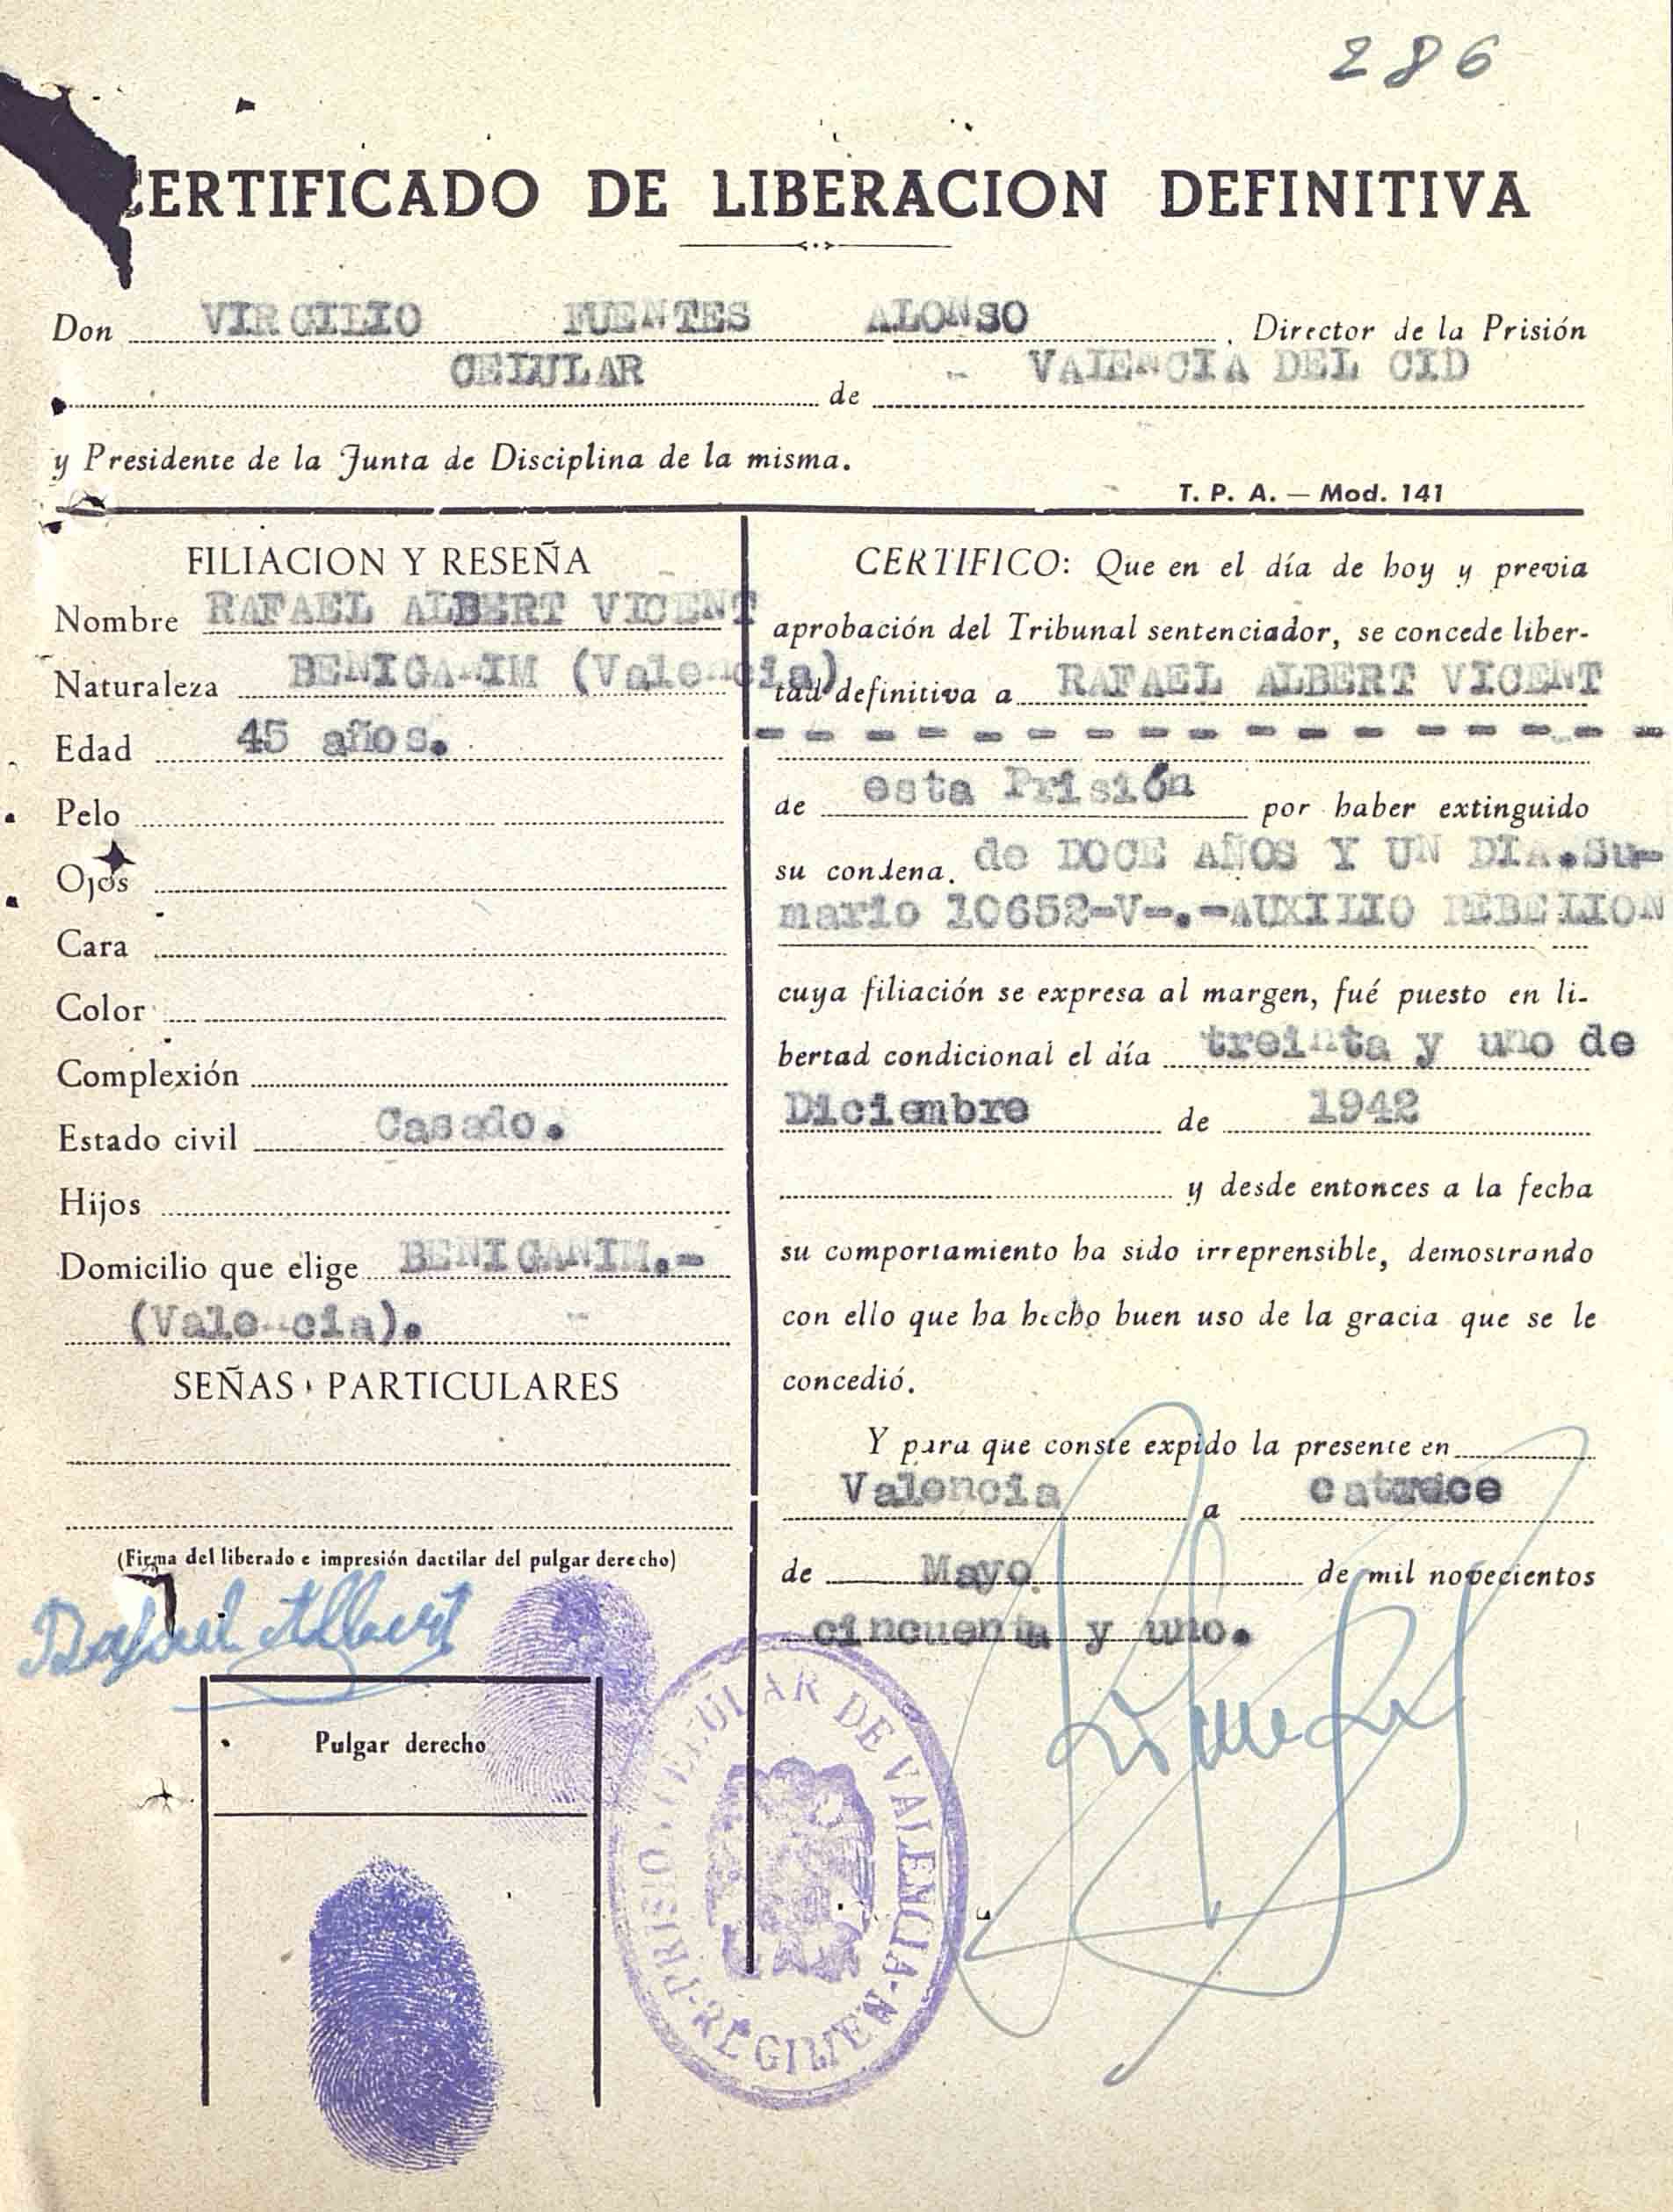 286
CERTIFICADO DE LIBERACION DEFINITIVA
Don VIRGILIO FUENTES ALONSO, Director de la Prisión
CELULAR de VALENCIA DEL CID
y Presidente de la Junta de Disciplina de la misma.
T. P. A. — Mod. 141
FILIACION Y RESEÑA
Nombre RAFAEL ALBERT VICENT
Naturaleza BENIGANIM (Valencia)
Edad 45 años.
Pelo
Ojos
Cara
Color
Complexión
Estado civil Casado.
Hijos
Domicilio que elige BENIGANIM.-
(Valencia).
SEÑAS PARTICULARES
(Firma del liberado e impresión dactilar del pulgar derecho)
Rafael Albert
Pulgar derecho
CERTIFICO: Que en el día de hoy y previa
aprobación del Tribunal sentenciador, se concede liber-
tad definitiva a RAFAEL ALBERT VICENT
- - - - - - - - - - - - - - - - -
de esta Prisión por haber extinguido
su condena. de DOCE AÑOS Y UN DIA.Su-
mario 10652-V-.-AUXILIO REBELION
cuya filiación se expresa al margen, fué puesto en li-
bertad condicional el día treinta y uno de
Diciembre de 1942
y desde entonces a la fecha
su comportamiento ha sido irreprensible, demostrando
con ello que ha hecho buen uso de la gracia que se le
concedió.
Y para que conste expido la presente en
Valencia a catroce
de Mayo de mil novecientos
cincuenta y uno.
PRISION CELULAR DE VALENCIA-REGIMEN-